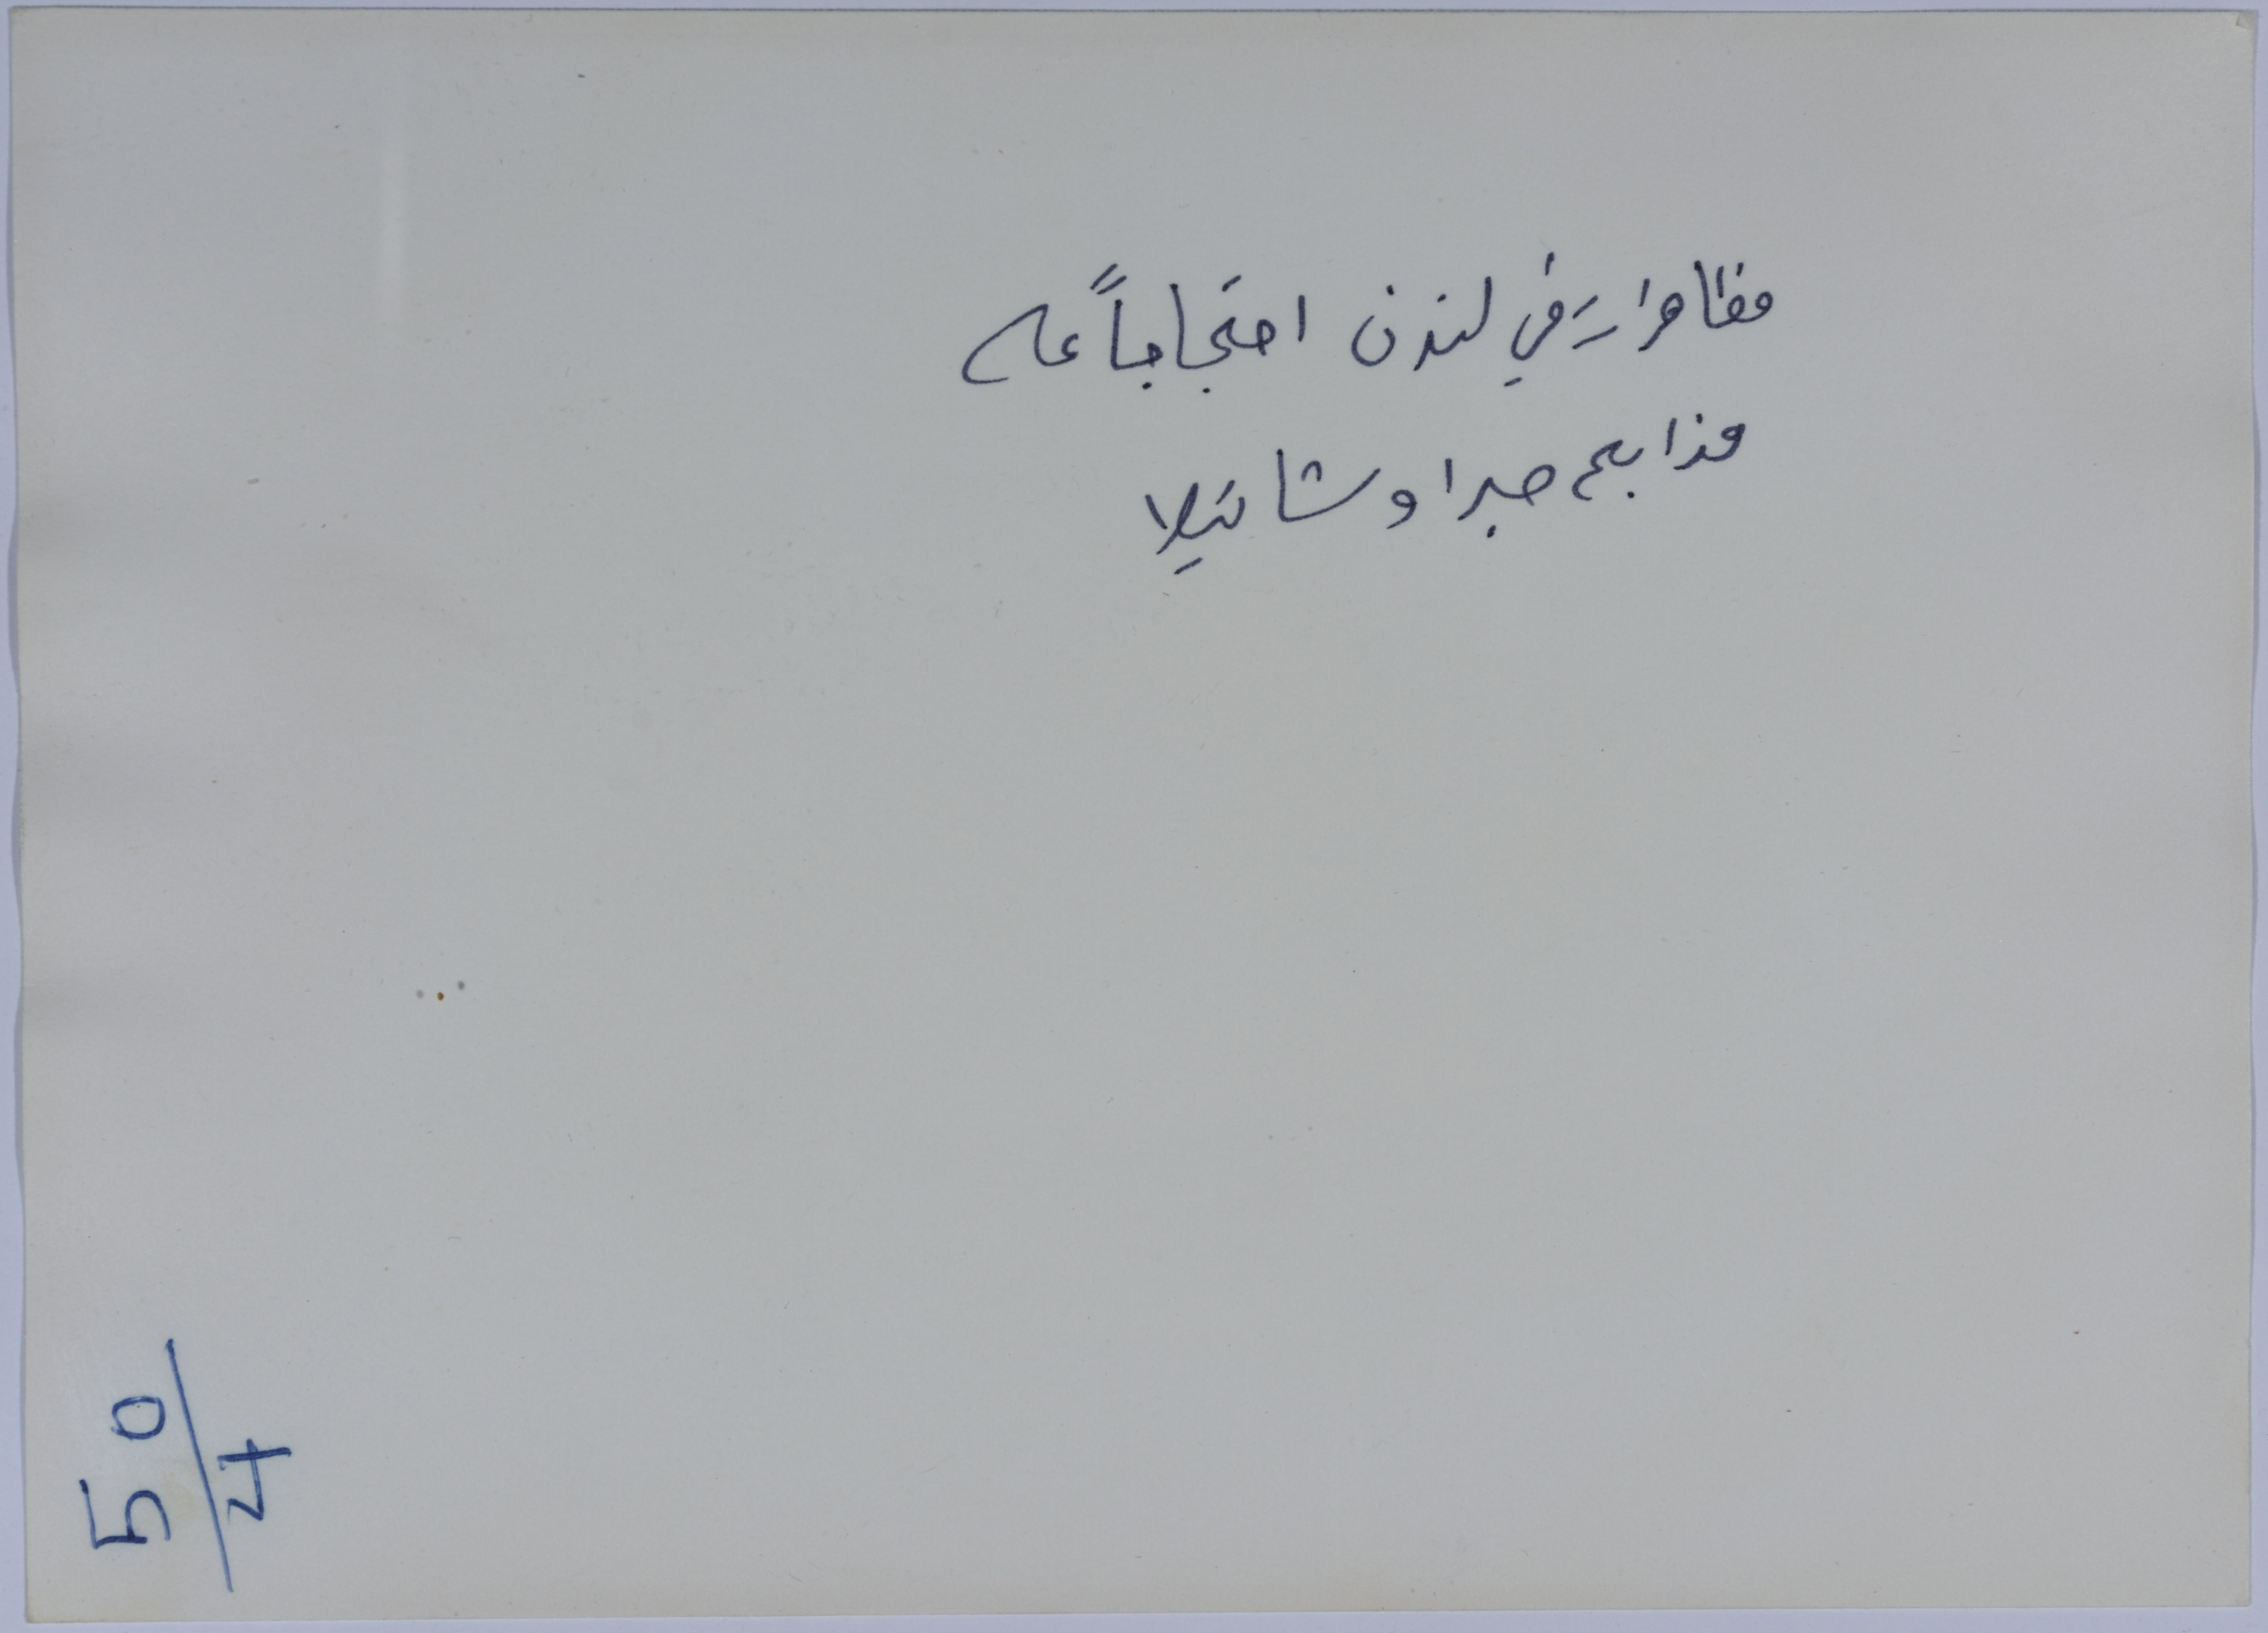 مظاهرات في لندن احتجاجاً على
مذابح صبرا وشاتيلا
50/4